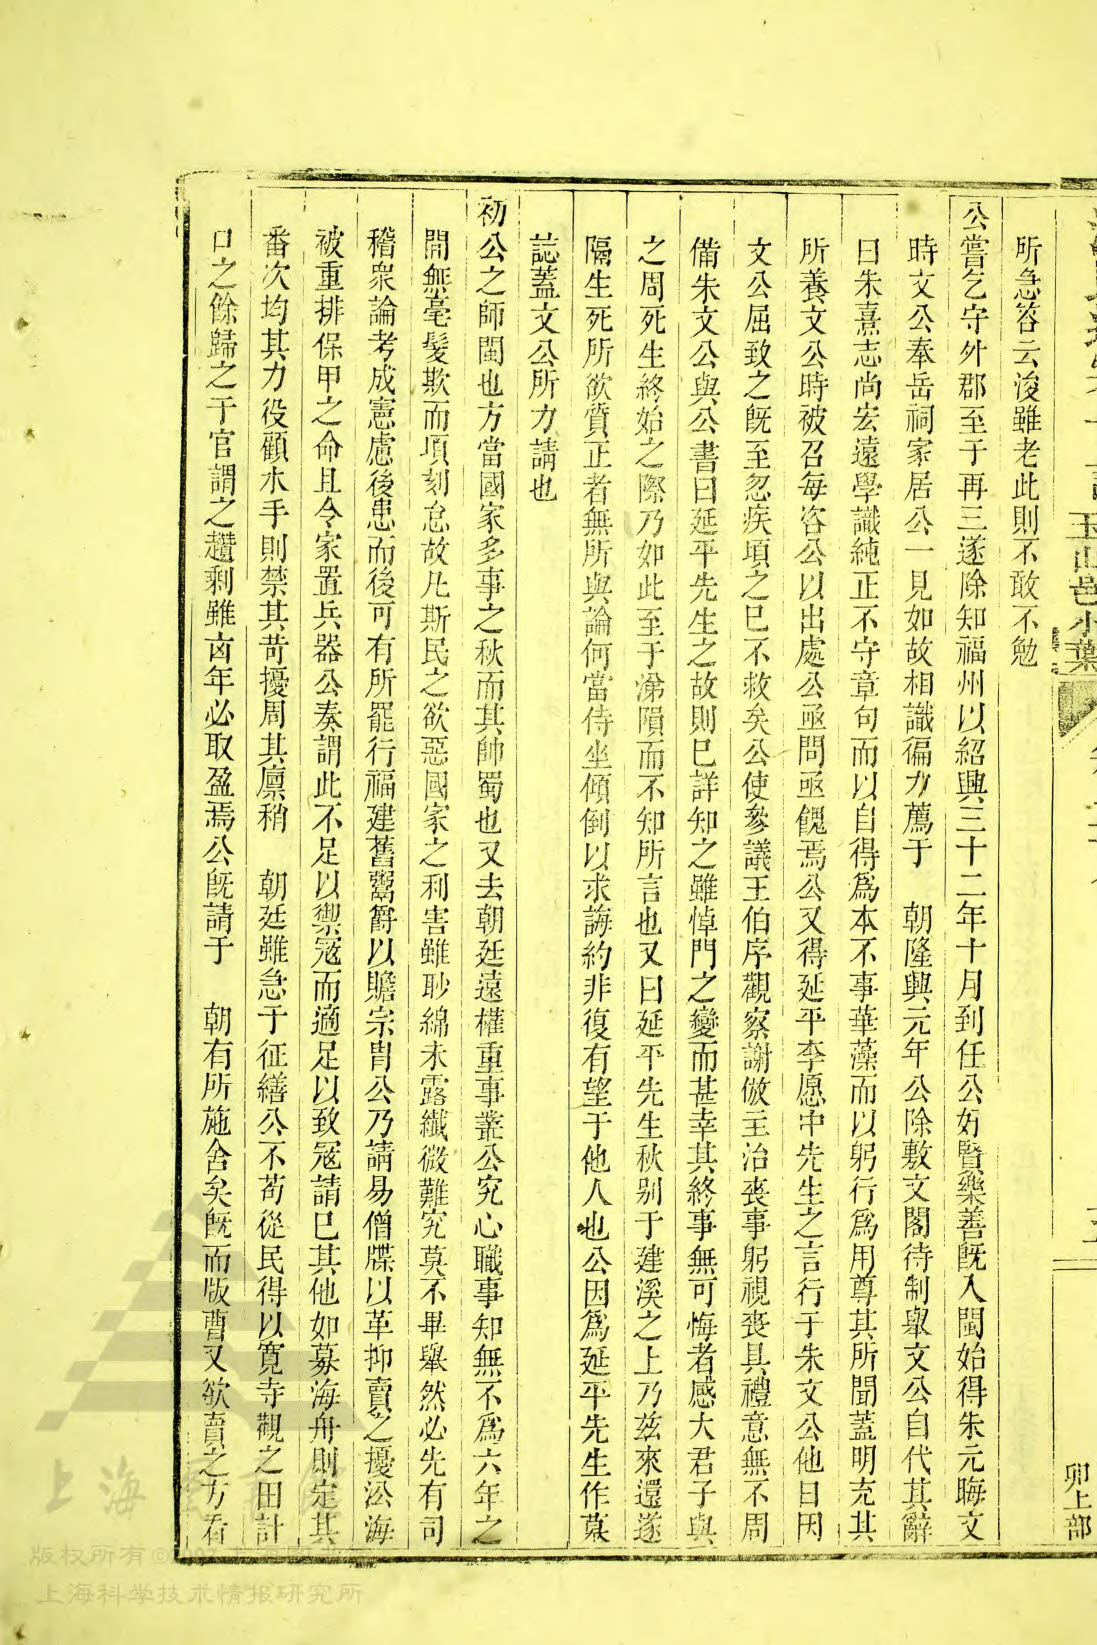 玉山邑小葉
卯上部
所急答云浚雖老此則不敢不勉
公嘗乞守外郡至于再三遂除知福州以紹興三十二年十月到任公好賢樂善旣入閩始得朱元晦文
時文公奉岳祠家居公一見如故相識徧力薦于 朝隆興元年公除敷文閣待制舉文公自代其辭
曰朱熹志尚宏遠學識純正不守章句而以自得爲本不事華藻而以躬行爲用尊其所聞蓋明充其
所養文公時被召每咨公以出處公亟問亟餽焉公又得延平李愿中先生之言行于朱文公他日因
文公屈致之旣至忽疾項之巳不救矣公使參議王伯序觀察謝倣主治喪事躬視喪具禮意無不周
備朱文公與公書曰延平先生之故則巳詳知之雖悼門之變而甚幸其終事無可悔者感大君子與
之周死生終始之際乃如此至于涕隕而不知所言也又曰延平先生秋别于建溪之上乃茲來還遂
隔生死所欲質正者無所與論何當侍坐傾倒以求誨約非復有望于他人也公因爲延平先生作墓
誌蓋文公所力請也
初公之師閩也方當國家多事之秋而其帥蜀也又去朝廷遠權重事叢公究心職事知無不爲六年之
間無毫髮欺而項刻怠故凡斯民之欲惡國家之利害雖眇綿未露纖微難究莫不畢舉然必先有司
稽衆論考成憲慮後患而後可有所罷行福建舊鬻爵以贍宗胄公乃請易僧牒以革抑賣之擾沿海
被重排保甲之命且令家置兵器公奏謂此不足以禦冦而適足以致冦請巳其他如募海舟則定其
番次均其力役顧水手則禁其苛擾周其廩稍 朝廷雖急于征繕公不苟從民得以寛寺觀之田計
口之餘歸之于官謂之趲剩雖凶年必取盈焉公旣請于 朝有所施舍矣旣而版曹又欲賣之方看
上海圖書館
版权所有©
上海科学技术情报研究所